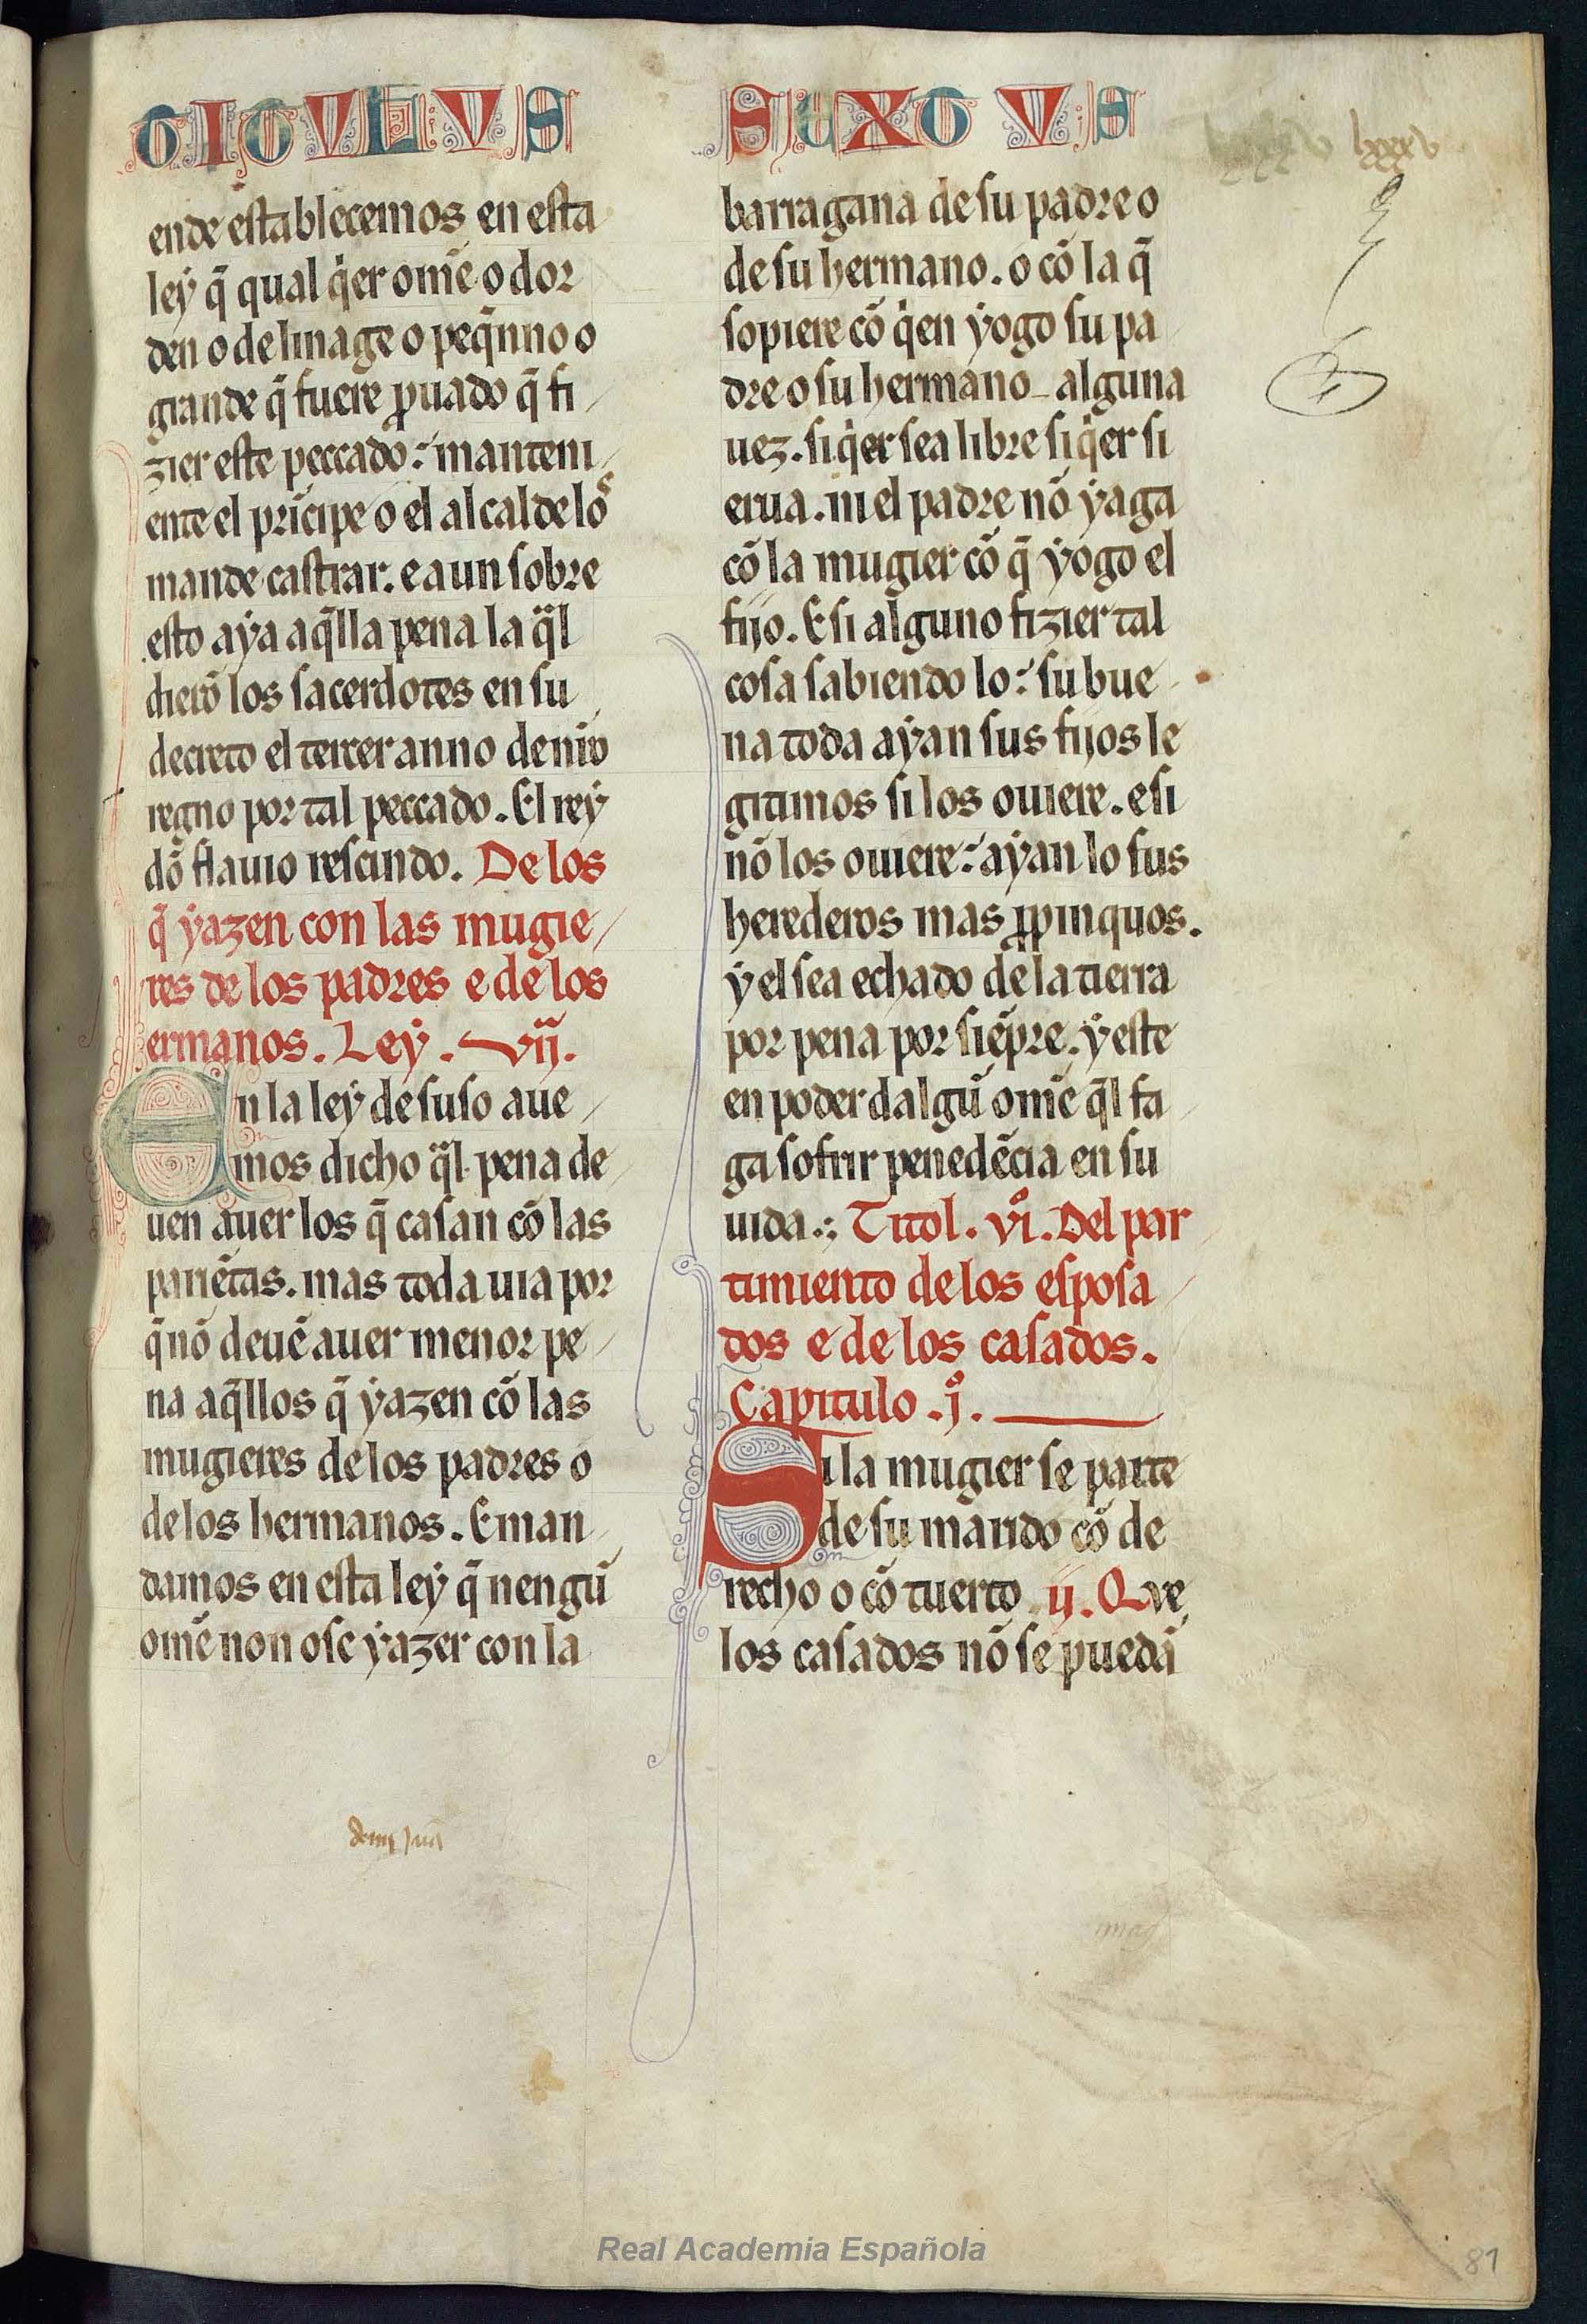 TITULUS SEXTUS
lxxxv
ende establecemos en esta
ley q̄ qual q̇er om̄e o dor
den o de linage o peq̄nno o
grande q̄ fuere ꝓuado q̄ fi
zier este peccado: manteni
ente el pͥncipe o el alcalde los
mande castrar. e aun sobre
esto aya aq̄lla pena la q̃l
dierō los sacerdotes en su
decreto el tercer anno de nr̄o
regno por tal peccado. El rey
dō flauio rescindo. De los
q̄ yazen con las mugie
res de los padres e de los
ermanos. Ley. vij.
En la ley de suso aue
mos dicho q̃l pena de
uen auer los q̄ casan cō las
pariētas. mas toda uia por
q̄ nō deuē auer menor pe
na aq̄llos q̄ yazen cō las
mugieres de los padres o
de los hermanos. E man
damos en esta ley q̄ nengū
om̄e non ose yazer con la
barragana de su padre o
de su hermano. o cō la q̄
sopiere cō q̇en yogo su pa
dre o su hermano alguna
uez. si q̇er sea libre si q̇er si
erua. ni el padre nō yaga
cō la mugier cō q̄ yogo el
fijo. E si alguno fizier tal
cosa sabiendo lo: su bue
na toda ayan sus fijos le
gitimos si los ouiere. e si
nō los ouiere: ayan lo sus
herederos mas ꝓpinquos.
y el sea echado de la tierra
por pena por siēpre. y este
en poder dalgū om̄e q̄l fa
ga sofrir penedēcia en su
uida.: Titol. vi. Del par
timiento de los esposa
dos e de los casados.
Capitulo .j.
Si la mugier se parte
de su marido cō de
recho o cō tuerto. ij. Qve
los casados nō se puedā
Real Academia Española
81